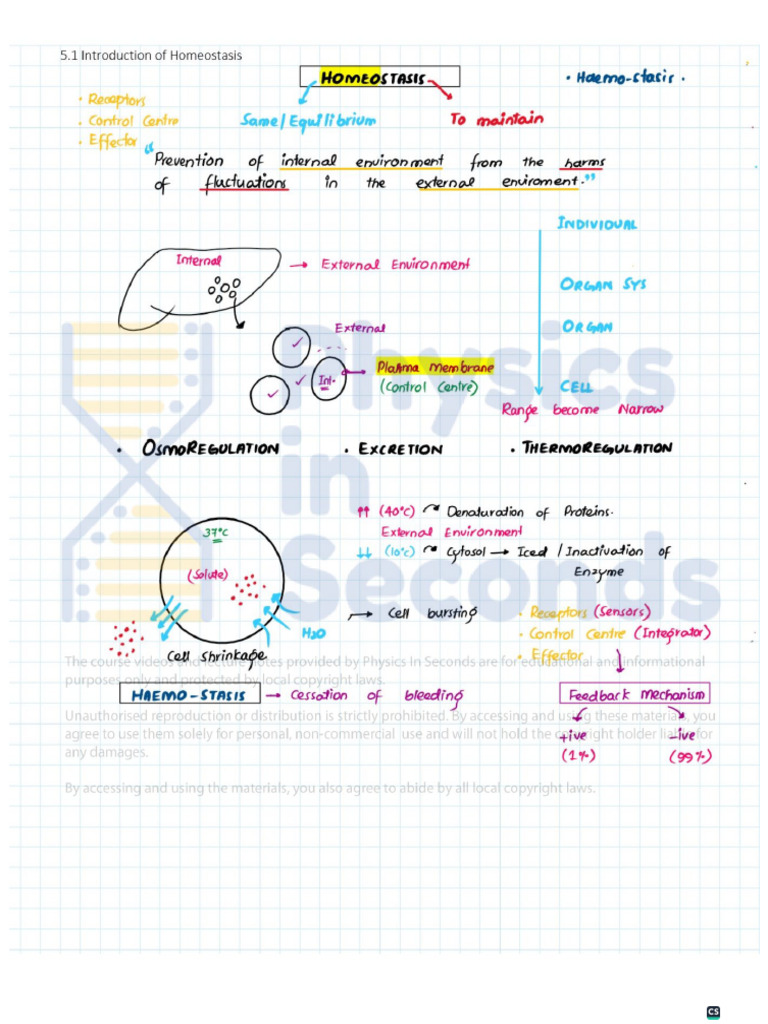 5.1 Introduction of Homeostasis
HOMEOSTASIS
• Haemo-stasis •
• Receptors
• Control Centre
• Effector
Same/Equilibrium
To maintain
“Prevention of internal environment from the harms
of fluctuations in the external enviroment.”
INDIVIDUAL
Internal
→ External Environment
ORGAN SYS
External
ORGAN
Int.
Plasma Membrane
(Control Centre)
CELL
Range become Narrow
• OSMOREGULATION • EXCRETION • THERMOREGULATION
↑↑ (40°C) Denaturation of Proteins.
37°C
External Environment
↓↓ (10°C) Cytosol → Iced / Inactivation of
Enzyme
(Solute)
→ Cell bursting
H2O
Cell shrinkage
• Receptors (Sensors)
• Control Centre (Integrator)
• Effector
The course videos and lecture notes provided by Physics In Seconds are for educational and informational
purposes only and protected by local copyright laws.
HAEMO-STASIS → Cessation of bleeding
Feedback Mechanism
Unauthorised reproduction or distribution is strictly prohibited. By accessing and using these materials, you
agree to use them solely for personal, non-commercial use and will not hold the copyright holder liable for
any damages.
+ive -ive
(1%) (99%)
By accessing and using the materials, you also agree to abide by all local copyright laws.
Physics
in
Seconds
CS